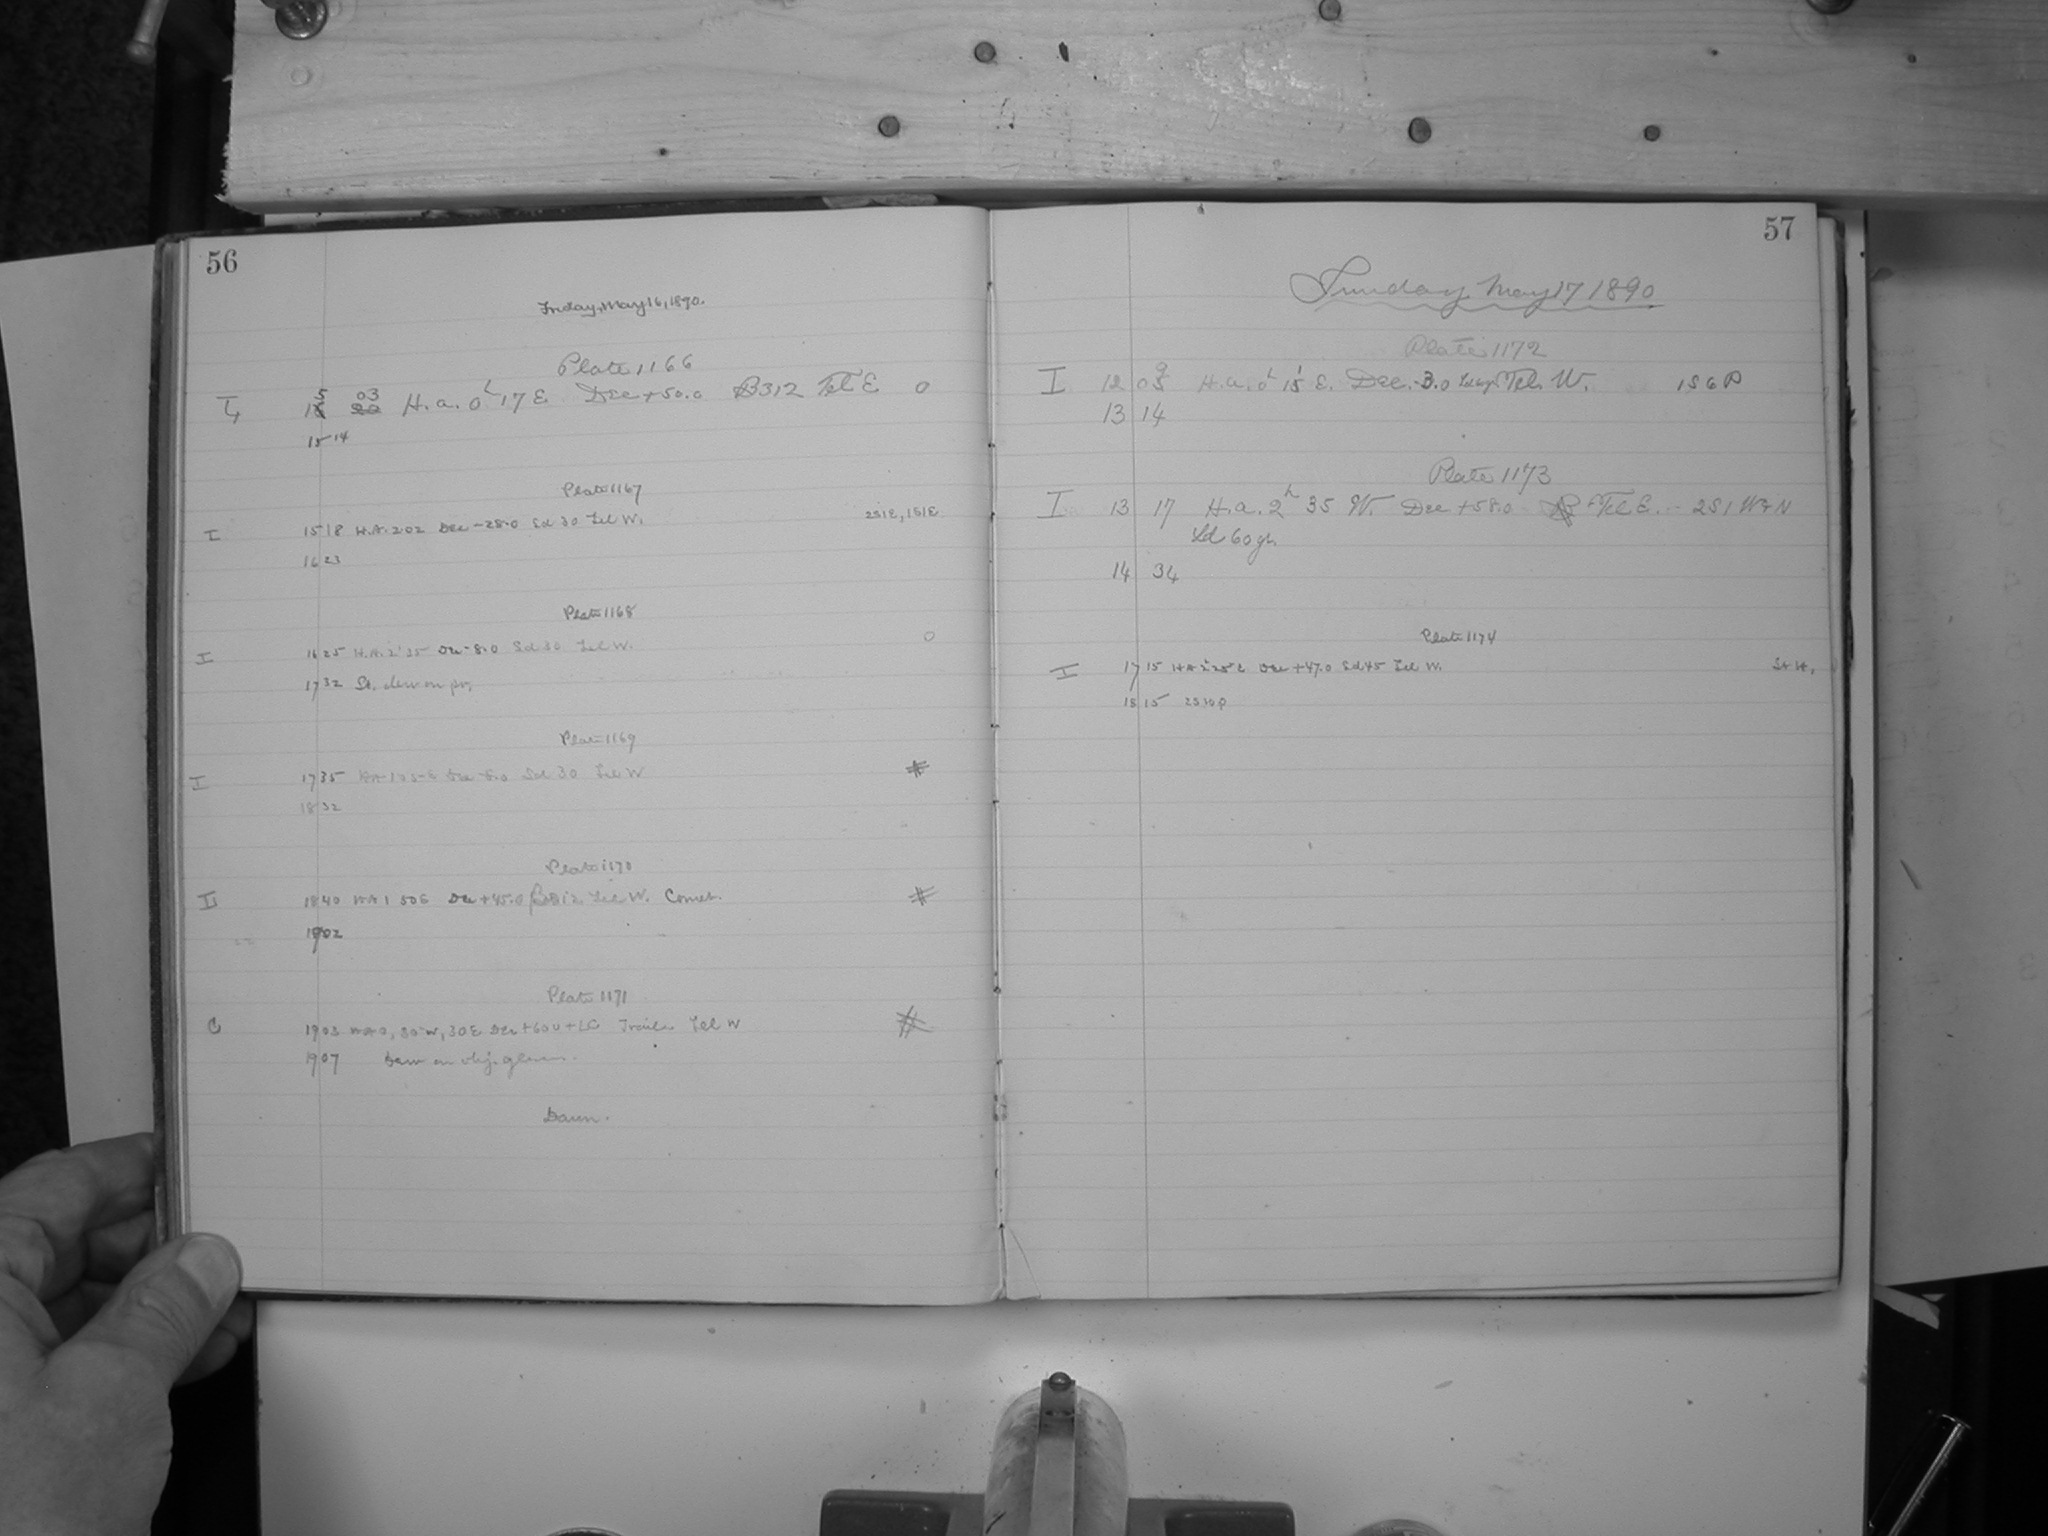 56
Friday, May 16, 1890.
Plate 1166
15 03 H.a. 0h 17 E Dec +50.0 B312 Tel E 0
15 14
Plate 1167
I 15 18 H.A. 2 02 Dec -28.0 Sd 30 Tel W. 2S1E, 1S1E
16 23
Plate 1168
I 16 25 H.A. 2 35 Dec -8.0 Sd 30 Tel W. 0
17 32 St. dew on
Plate 1169
I 17 35 Sd 30 Tel W
18 32
Plate 1170
18 40 HA 1 50 E Dec +45.0 Tel W. Comet.
1902
Plate 1171
C 1903 30 W, 30 E Dec +60 Trails Tel W
1907 Dew on obj. glass.
Dawn.
57
Sunday May 17 1890
Plate 1172
I 12 09 H.a. 0h 15 E. Dec. -3.0 Tel. W. 1S6P
13 14
Plate 1173
I 13 17 H.a. 2h 35 W. Dec +58.0 Tel E. 2S1W4N
Sd 60 gr.
14 34
Plate 1174
I 17 15 Dec +47.0 Sd 45 Tel W. St H.
18 15 2S10P